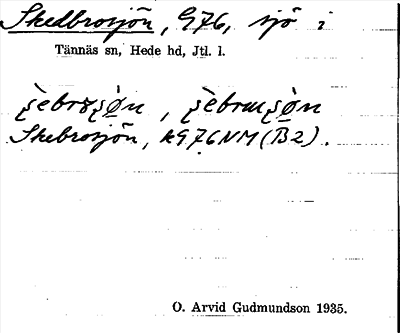 Skedbrosjön, G76, sjö i
Tännäs sn, Hede hd, Jtl. l.
Skebrosjön, k976NM(B2).
O. Arvid Gudmundson 1935.